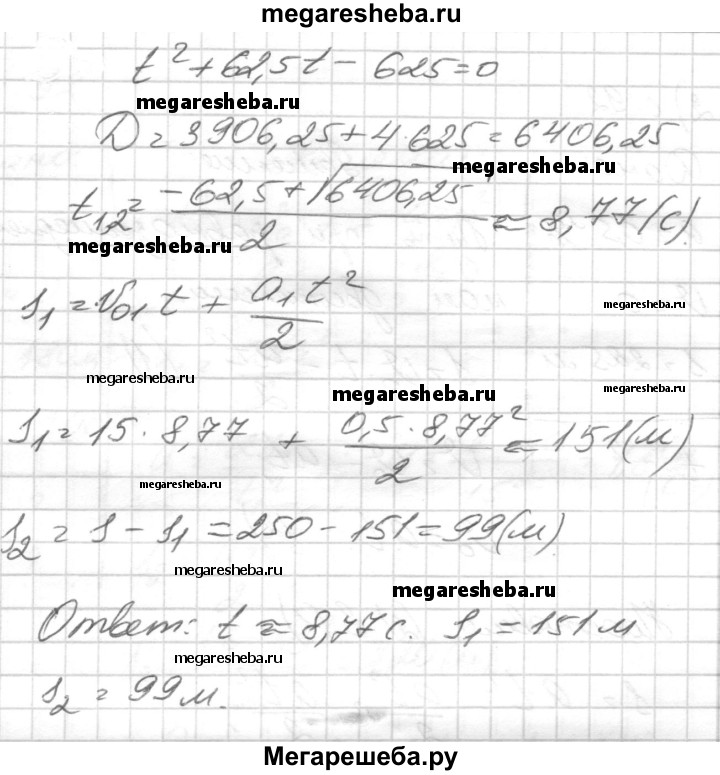 megaresheba.ru
t² + 62,5t - 625 = 0
megaresheba.ru
D = 3906,25 + 4·625 = 6406,25
megaresheba.ru
t₁,₂ = (-62,5 + √6406,25) / 2 ≈ 8,77 (с).
megaresheba.ru
S₁ = V₀₁t + a₁t² / 2
megaresheba.ru
megaresheba.ru
megaresheba.ru
megaresheba.ru
S₁ = 15 · 8,77 + 0,5 · 8,77² / 2 ≈ 151 (м)
megaresheba.ru
S₂ = S - S₁ = 250 - 151 = 99 (м)
megaresheba.ru
megaresheba.ru
Ответ: t ≈ 8,77 с. S₁ = 151 м
megaresheba.ru
S₂ = 99 м.
Мегарешеба.ру